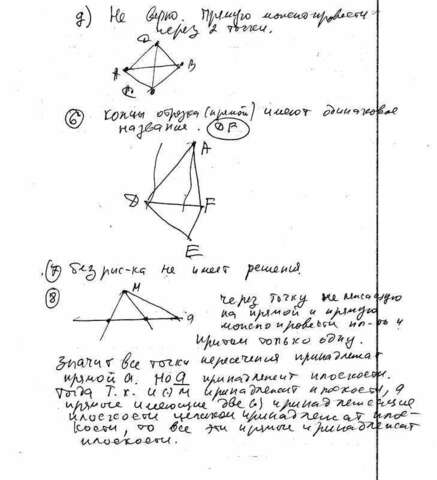 д) Не верно. Прямую можно провести
через 2 точки.
A B
C
6 концы отрезка (прямой) имеют одинаковое
название. DF
A
D F
E
7 без рис-ка не имеет решения
8 M
a
через точку не лежащую
на прямой и прямую
можно провести пл-ть и
притом только одну.
Значит все точки пересечения принадлежат
прямой a. Но a принадлежит плоскости.
Тогда т.к. и M принадлежит плоскости, а
прямые имеющие две принадлежащие
плоскости целиком принадлежат плос-
кости, то все эти прямые принадлежат
плоскости.